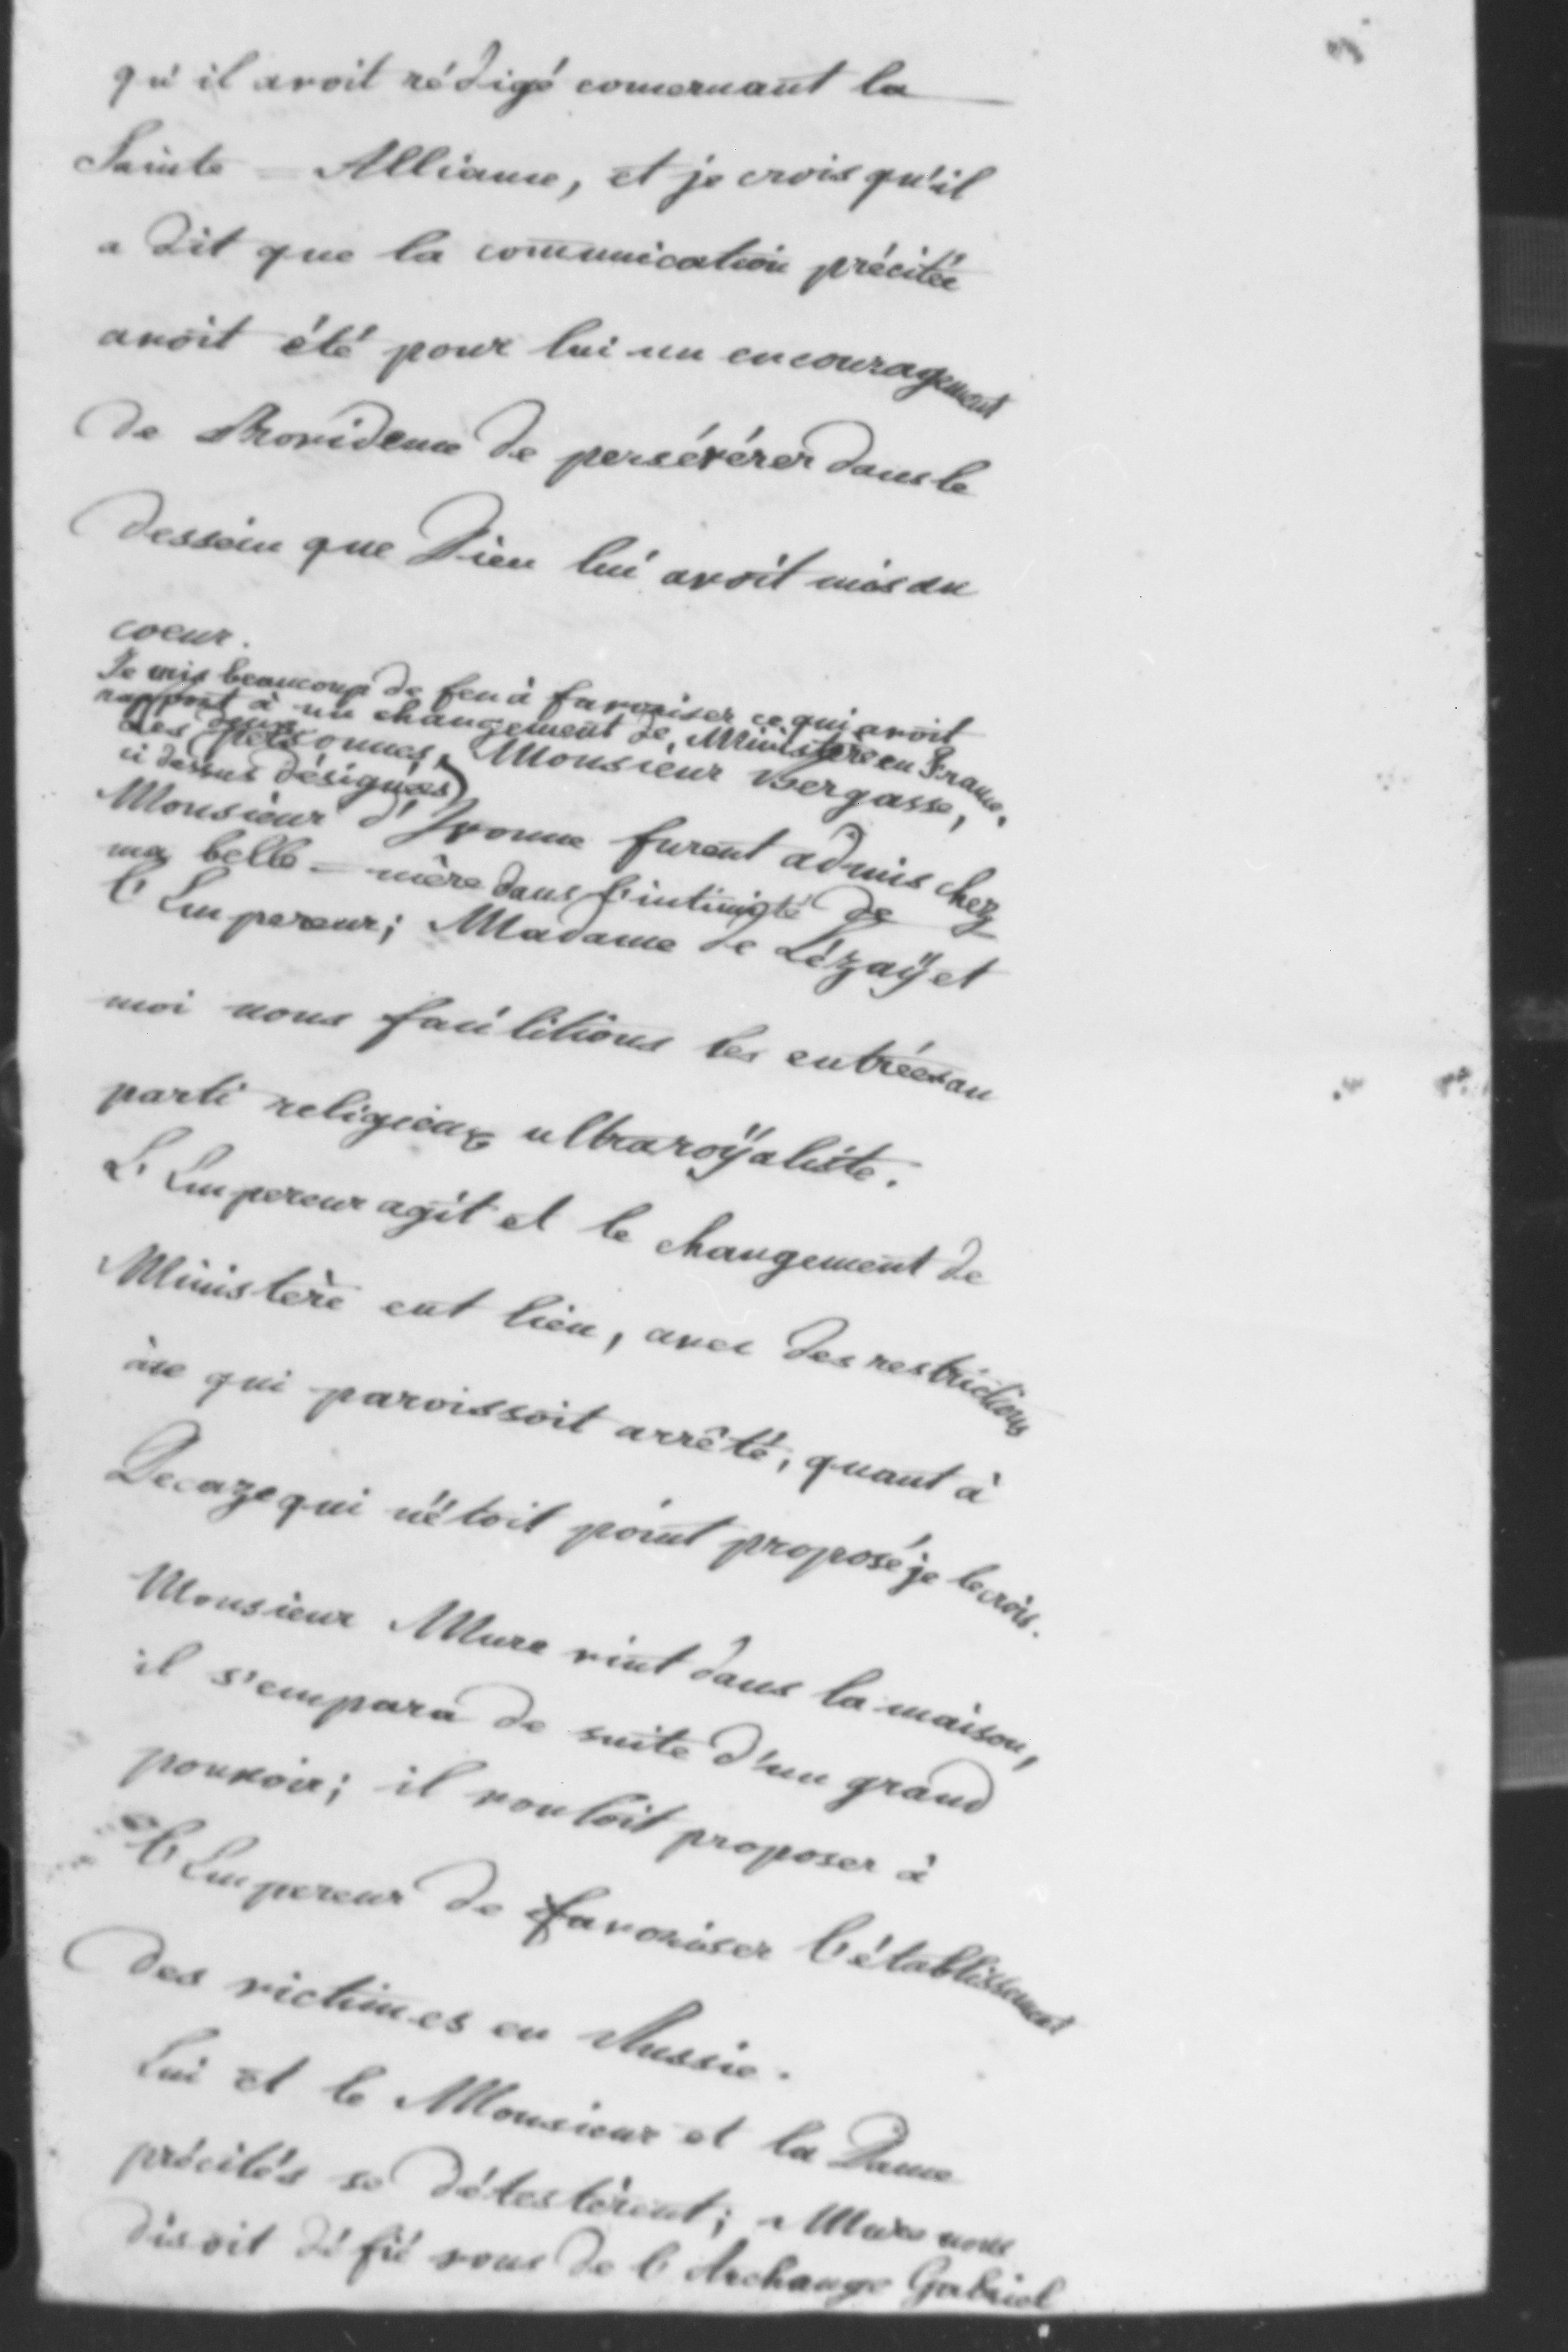 qu'il avoit rédigé concernant la
Sainte = Alliance, et je crois qu'il
a dit que la communication précitée
avoit été pour lui un encouragement
de Providence de persévérer dans le
dessein que Dieu lui avoit mis au
coeur.
Je mis beaucoup de feu à favoriser ce qui avoit
rapport à un changement de Ministère en France.
Les deux personnes, Monsieur Bergasse,
ci dessus désignées)
Monsieur d'Ivonne furent admis chez
ma belle = mère dans l'intimité de
l'Empereur; Madame de Lézaÿ et
moi nous facilitions les entrées au
parti religieux ultraroÿaliste.
L'Empereur agit et le changement de
Ministère eut lieu, avec des restrictions
à ce qui paroissoit arrêté, quant à
Decaze qui n'étoit point proposé je le crois.
Monsieur Mure vint dans la maison,
il s'empara de suite d'un grand
pouvoir; il vouloit proposer à
l'Empereur de favoriser l'établissement
des victimes en Russie.
Lui et le Monsieur et la Dame
précités se détestèrent; Mure nous
disoit défié vous de l'Archange Gabriel